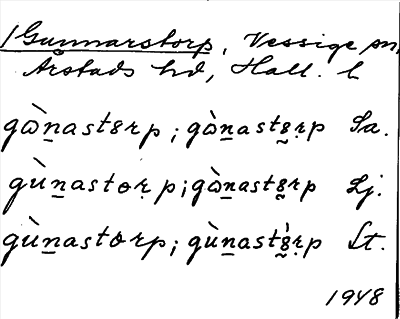 Gunnarstorp, Vessige sn,
Årstads hd, Hall. l
gɷ̀n̲astɞrp; gɷ̀n̲astɞ̰ṛp Sa.
gùn̲astɵṛp; gɷ̀n̲astɞ̰ṛp Lj.
gùn̲astɵrp; gùn̲astɞ̰̀ṛp St.
1948